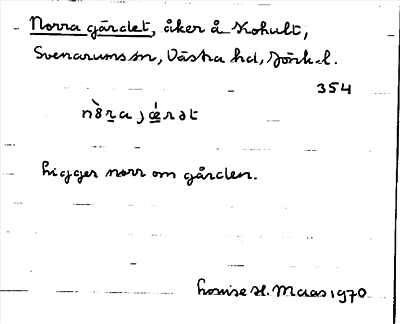 Norra gärdet, åker å Kohult,
Svenarums sn, Västra hd, Jönk. l.
354
nòra jǽrət
Ligger norr om gården.
Louise H. Maas 1970